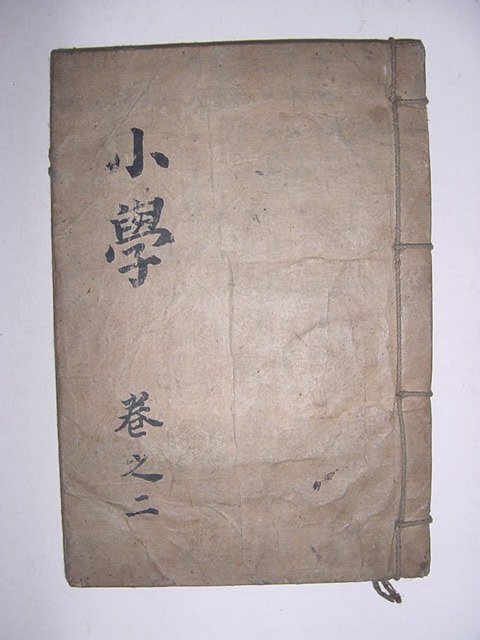 小學
卷之二